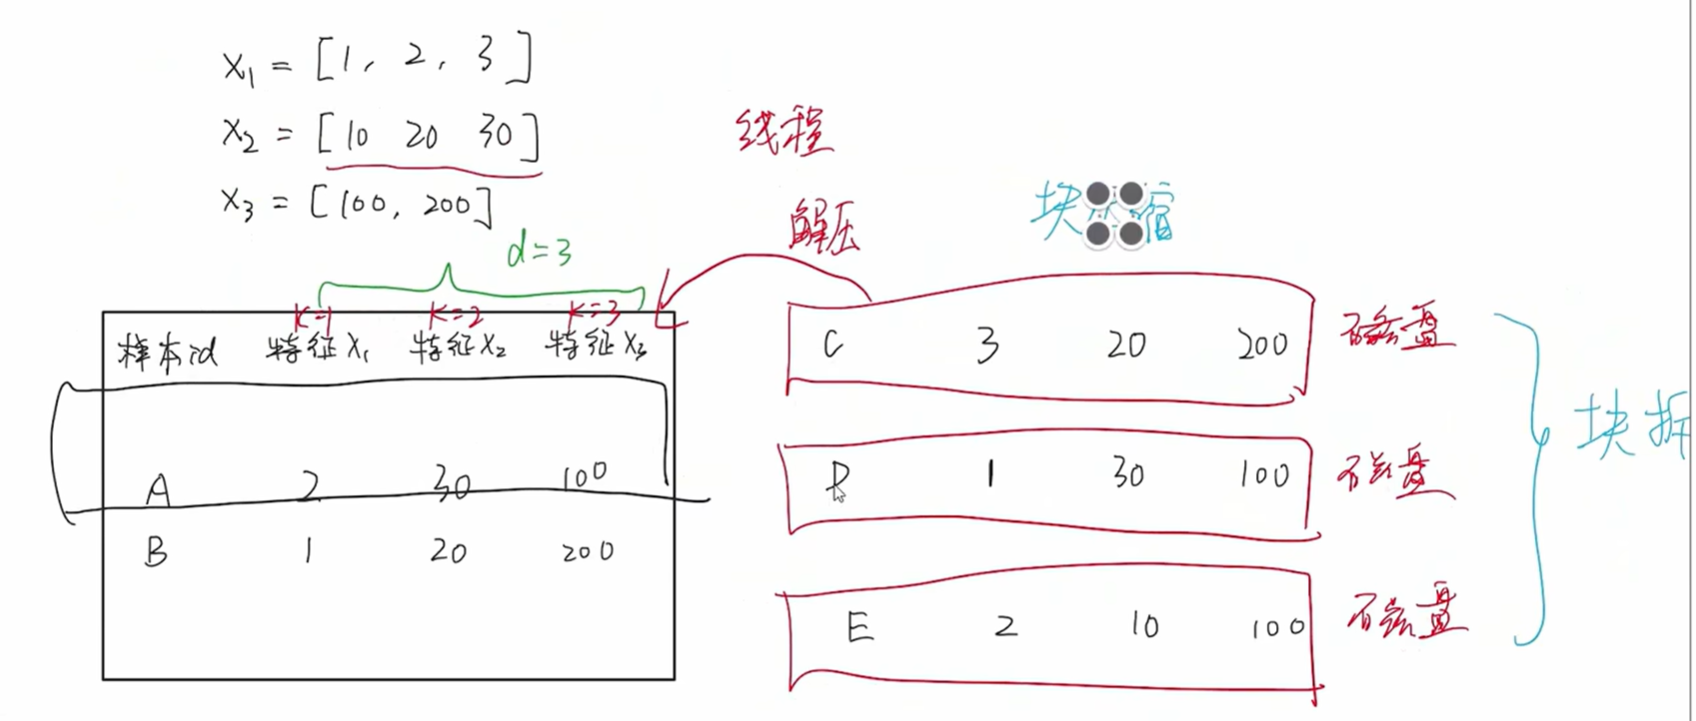 X₁ = [1, 2, 3]
X₂ = [10 20 30]
X₃ = [100, 200]
d=3
K=1 K=2 K=3
样本id 特征X₁ 特征X₂ 特征X₃
A 2 30 100
B 1 20 200
线程
解压
块 缩
C 3 20 200 磁盘
D 1 30 100 磁盘
E 2 10 100 磁盘
块拆